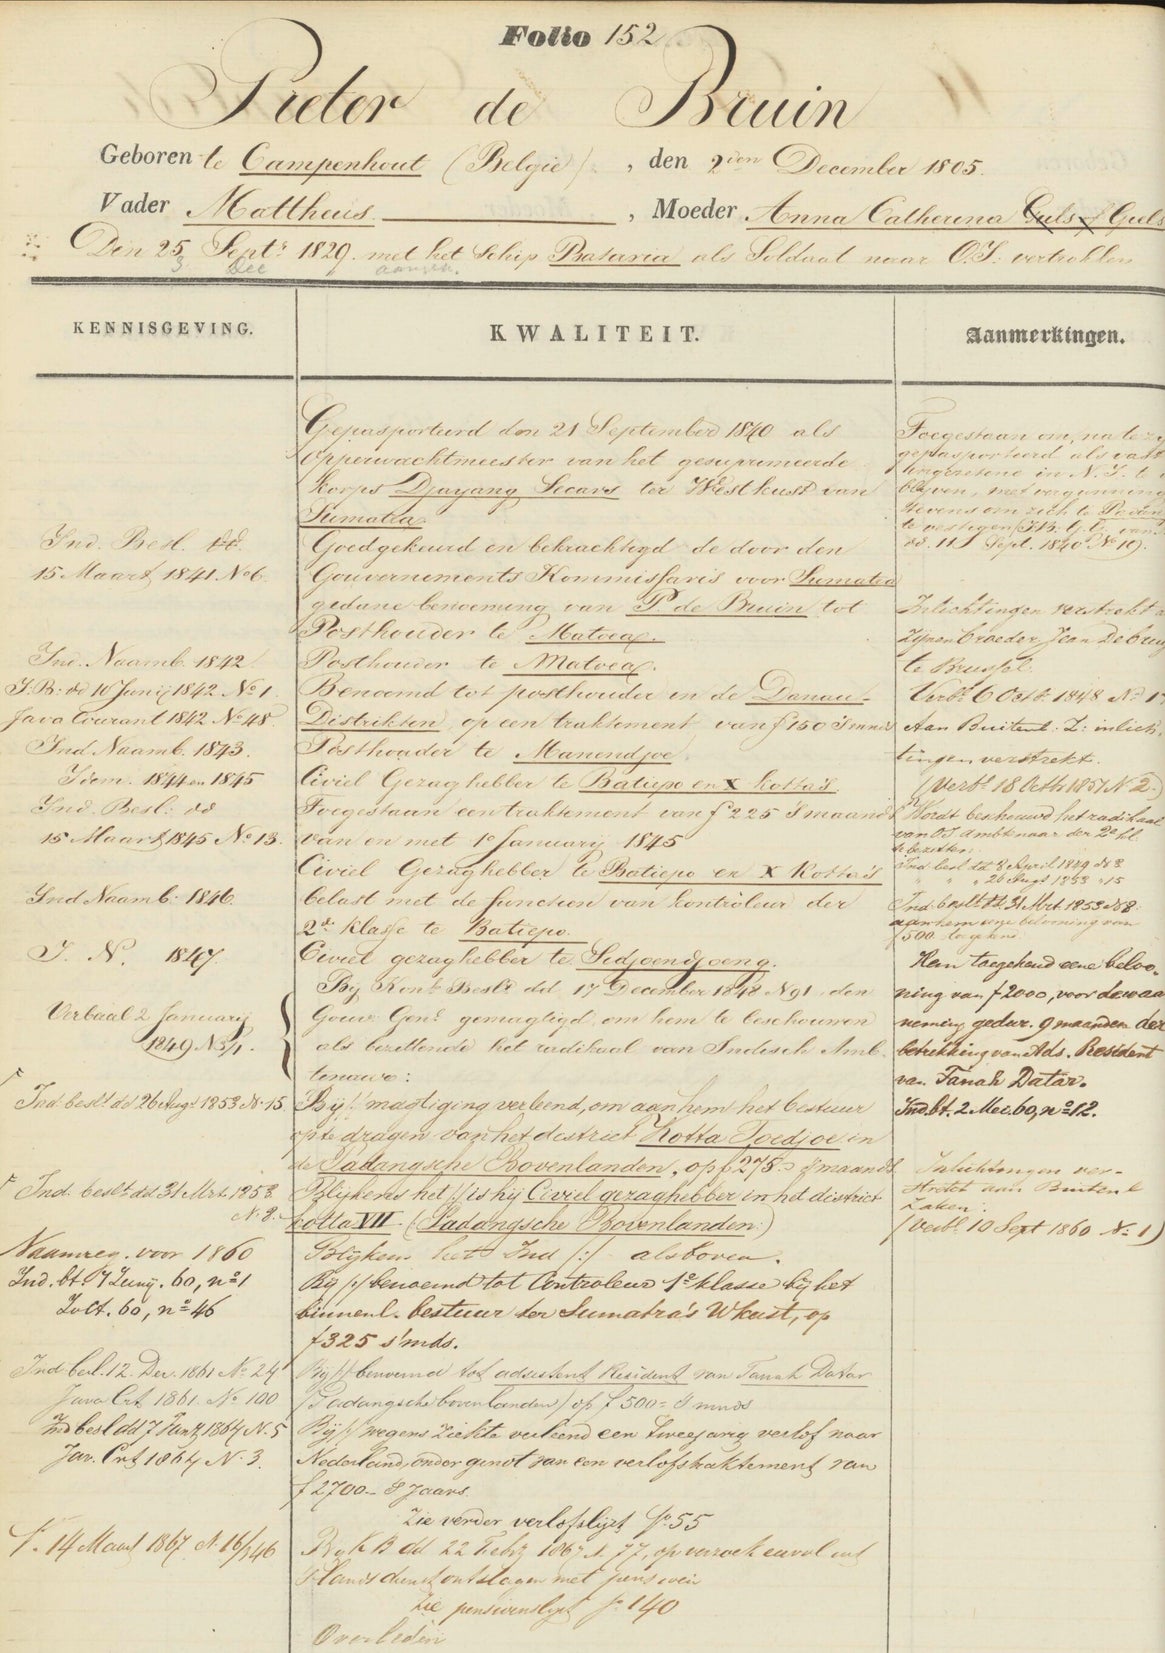 Folio 152
Pieter de Bruin
Geboren te Campenhout (Belgie), den 2den December 1805.
Vader Mattheus, Moeder Anna Catherina Guls of Giels
Den 25 Septr 1829. met het schip Batavia als Soldaat naar O.I: vertrokken
KENNISGEVING.
KWALITEIT.
Aanmerkingen.
Gepasporteerd den 21 September 1840 als
opperwachtmeester van het gesuprimeerde
Korps Djayang Secars ter Westkust van
Sumatra.
Ind. Besl. dd.
15 Maart 1841 No 6.
Goedgekeurd en bekrachtigd de door den
Gouvernements Kommissaris voor Sumatra
gedane benoeming van P. de Bruin tot
Posthouder te Matoea.
Ind. Naamb. 1842
Posthouder te Matoea.
I.B: dd 10 Junij 1842 No 1.
Java Courant 1842 No 48.
Benoemd tot posthouder in de Danau-
Distrikten, op een traktement van f 150 's mnds
Ind Naamb. 1843.
Posthouder te Manendjoe.
Idem. 1844 en 1845
Civiel Gezaghebber te Batiepo en X Kotta's.
Ind. Besl: dd
15 Maart 1845 No 13.
Toegestaan een traktement van f 225 's maands
van en met 1o January 1845
Ind Naamb. 1846.
Civiel Gezaghebber te Batiepo en X Kotta's
belast met de functien van kontroleur der
2de klasse te Batiepo.
I. N. 1847.
Civiel gezaghebber te Sidjoendjoeng.
Verbaal 2 January
1849 No 3/1.
Bij Konk Beslt dd. 17 December 1848 No 91. den
Gouvr Genl gemagtigd, om hem te beschouwen
als bezittende het radikaal van Indisch Amb-
tenaar:
Ind. beslt dd 26 Augt 1853 No 15
Bij // magtiging verleend, om aan hem het bestuur
op te dragen van het district Kotta Toedjoe in
de Padangsche Bovenlanden, op f 275.- 's maands
Ind. beslt dd 31 Mrt 1858
No 8.
Blijkens het // is hij Civiel gezaghebber in het district
Kotta VII (Padangsche Bovenlanden.)
Naamreg. voor 1860
Blijkens het Ind /:/ als boven.
Ind. bt. 7 Junij. 60, no 1
J. Ct. 60, no 46
Bij // benoemd tot Controleur 1e klasse bij het
binnenl. bestuur ter Sumatra's Wkust, op
f 325 s'mds.
Ind. besl. 12. Dec. 1861 No 24
Java Crt 1861. No 100
Bij // benoemd tot adsistent Resident van Tanah Datar
(Padangsche bovenlanden) op f 500= 's mnds
Ind besl dd 7 Jan 1864 N. 5
Jav. Crt 1864 N. 3.
Bij // wegens ziekte verleend een tweejarig verlof naar
Nederland, onder genot van een verlofstraktement van
f 2700- 's jaars
Zie verder verlofslijst fo 55
14 Maart 1867 N. 16/346
Bij k B dd 22 Febr 1867 No 77, op verzoek eervol uit
's Lands dienst ontslagen met pensioen
Zie pensioenslijst fo 140
Overleden
Toegestaan om, na te zijn
gepasporteerd als vast
ingezetene in N. I. te
blijven, met vergunning
tevens om zich te Padang
te vestigen
dd. 11 Sept. 1840 No 10).
Inlichtingen verstrekt a
zijnen broeder Jean De bruy
te Brussel.
Verbl 6 Octr. 1848 No 1
Aan Buitenl. Z: inlich-
tingen verstrekt.
(Verbl 18 Octb 1851 N 2.)
Wordt beschouwd het radikaal
van OI ambtenaar der 2e kl.
te bezitten.
Ind besl dd 8 April 1849 No 3
" " 26 Augt 1853 " 15
Ind: beslt dd. 31 Mrt. 1858 No 8.
aan hem eene belooning van
f 500 toegekend.
Hem toegekend eene beloo-
ning van f 2000, voor de waar
neming gedur. 9 maanden der
betrekking van Ads. Resident
van Tanah Datar.
Ind. bt. 2 Mei. 60, no 12.
Inlichtingen ver-
strekt aan Buitenl
Zaken.
(Verbl 10 Sept 1860 No 1)